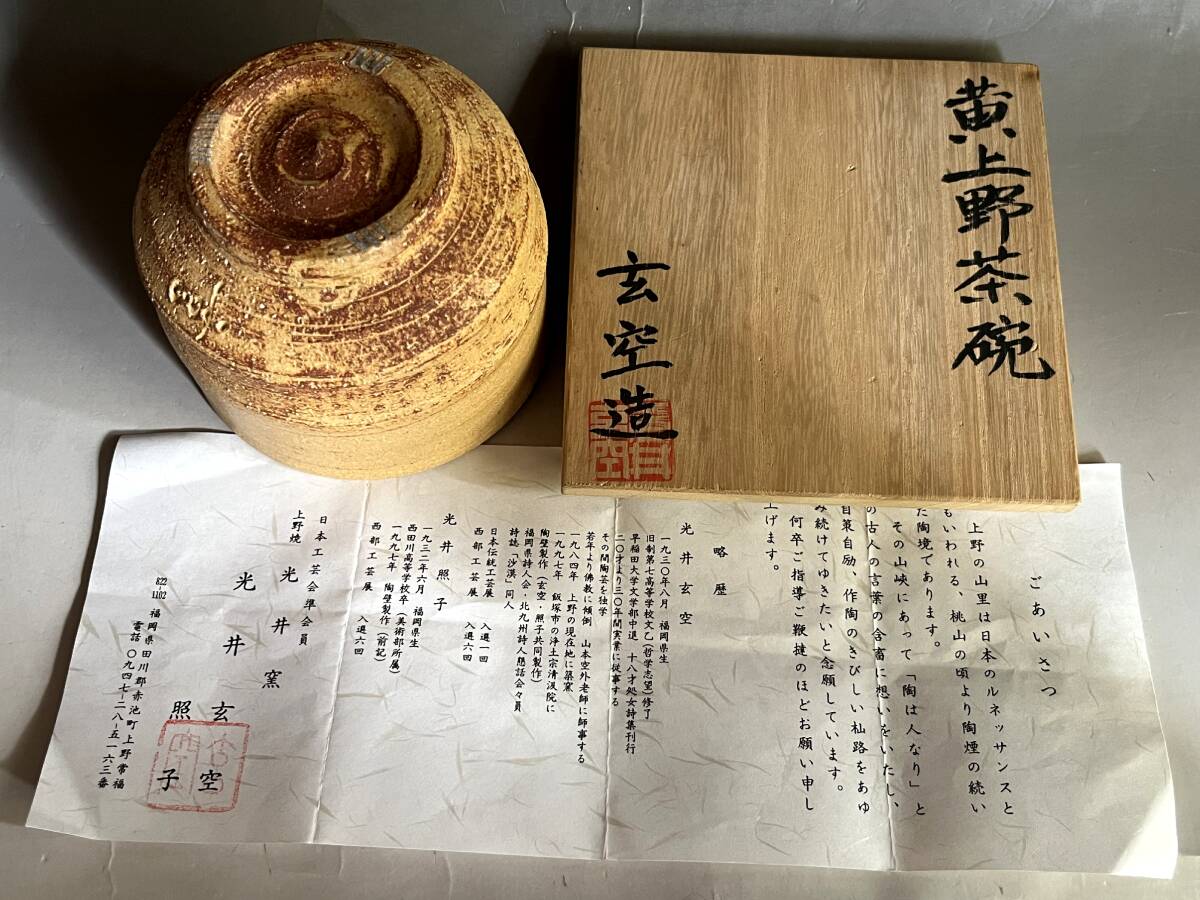 黄上野茶碗
玄空造
ごあいさつ
上野の山里は日本のルネッサンスと
もいわれる、桃山の頃より陶煙の続い
た陶境であります。
その山峡にあって「陶は人なり」と
の古人の言葉の含畜に想いをいたし、
自策自励、作陶のきびしい杣路をあゆ
み続けてゆきたいと念願しています。
何卒ご指導ご鞭撻のほどお願い申し
上げます。
略歴
光井玄空
一九三〇年八月 福岡県生
旧制第七高等学校文乙(哲学志望)修了
早稲田大学文学部中退 十八才処女詩集刊行
二〇才より三〇年間実業に従事する
その間陶芸を独学
若年より佛教に傾倒 山本空外老師に師事する
一九八四年 上野の現在地に築窯
一九九七年 飯塚市の浄土宗清汲院に
陶壁製作(玄空・照子共同製作)
福岡県詩人会・北九州詩人懇話会々員
詩誌「沙漠」同人
日本伝統工芸展 入選一回
西部工芸展 入選六回
光井照子
一九三二年六月 福岡県生
西田川高等学校卒(美術部所属)
一九九七年 陶壁製作(前記)
西部工芸展 入選六回
日本工芸会準会員
上野焼 光井窯
光井玄空
照子
822-1102 福岡県田川郡赤池町上野常福
電話〇九四七-二八-五一六三番